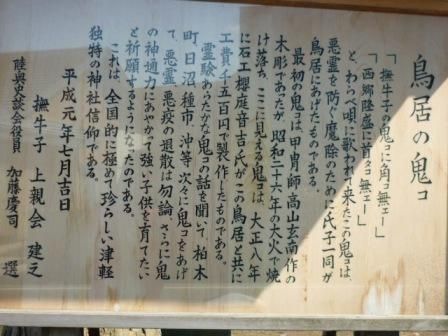 鳥居の鬼コ
「撫牛子の鬼コに角コ無エー」
「西郷隆盛に首タコ無エー」
と、わらべ唄に歌われて来たこの鬼コは、
悪霊を防ぐ魔除のために氏子一同が
鳥居にあげたものである。
最初の鬼コは、甲冑師高山玄南作の
木彫であったが、昭和二十六年の大火で焼
け落ち、ここに見える鬼コは、大正八年
に石工櫻庭音吉氏がこの鳥居と共に
工費千五百円で製作したものである。
霊験あらたかな鬼コの話を聞いて、柏木
町、日沼、種市、沖等、次々に鬼コをあげ
て、悪霊、悪疫の退散は勿論、さらに鬼
の神通力にあやかって強い子供を育てたい
と祈願するようになったのである。
これは、全国的に極めて珍らしい津軽
独特の神社信仰である。
平成元年七月吉日
撫牛子 上親会 建之
陸奥史談会役員 加藤慶司 選